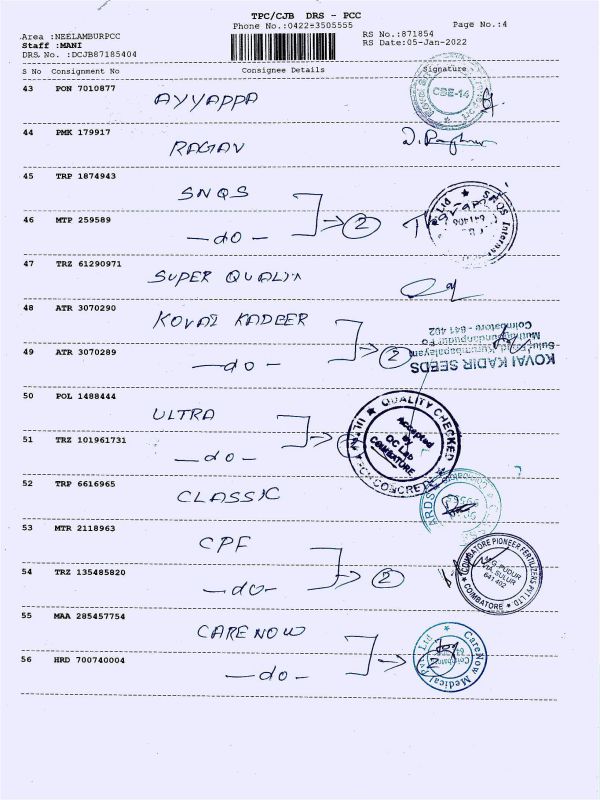 TPC/CJB DRS - PCC
Phone No.:0422-3505555
Page No.:4
Area :NEELAMBURPCC
RS No.:871854
Staff :MANI
RS Date:05-Jan-2022
DRS No. :DCJB87185404
S No Consignment No Consignee Details Signature
43 PON 7010877
AYYAPPA
CBE-14
44 PMK 179917
RAGAV
45 TRP 1874943
SNQS
46 MTP 259589
-do- 2
SNQS Internat Ltd
641406
47 TRZ 61290971
SUPER QUALITY
48 ATR 3070290
KOVAI KADEER
49 ATR 3070289
-do- 2
KOVAI KADIR SEEDS
Coimbatore - 641 402
50 POL 1488444
ULTRA
51 TRZ 101961731
-do-
QUALITY CHECKED
Accepted
By
QC Lab
COIMBATORE
52 TRP 6616965
CLASSIC
53 MTR 2118963
CPF
54 TRZ 135485820
-do- 2
COIMBATORE PIONEER FERTILIZERS PVT LTD
M.G. PUDUR
VIA. SULUR
641402
COIMBATORE
55 MAA 285457754
CARE NOW
56 HRD 700740004
-do- 2
CareNow Medical Pvt Ltd